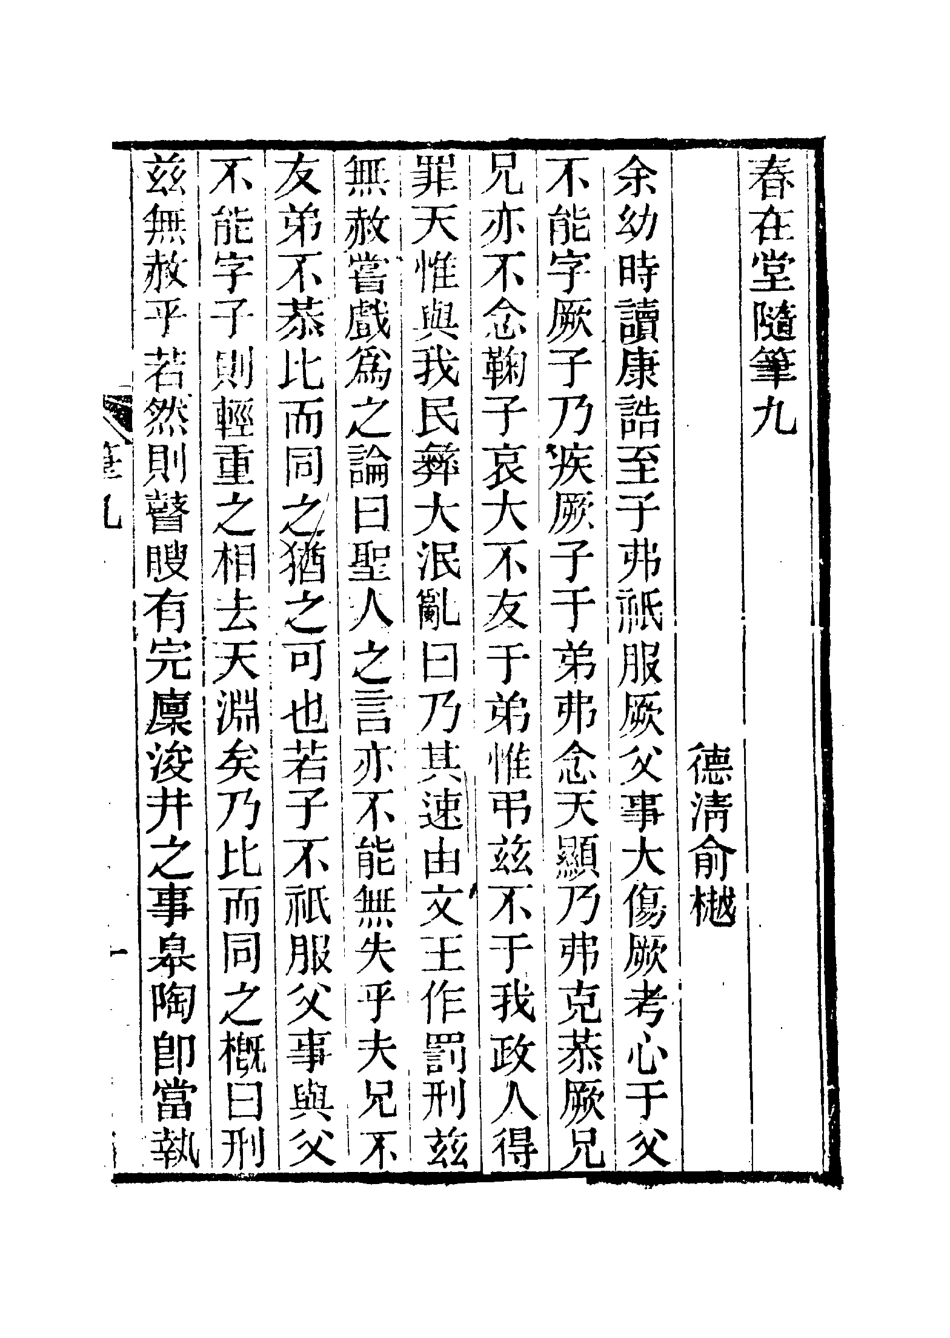 春在堂隨筆九
德清俞樾
余幼時讀康誥至子弗祇服厥父事大傷厥考心于父
不能字厥子乃疾厥子于弟弗念天顯乃弗克恭厥兄
兄亦不念鞠子哀大不友于弟惟弔兹不于我政人得
罪天惟與我民彝大泯亂曰乃其速由文王作罰刑兹
無赦嘗戲爲之論曰聖人之言亦不能無失乎夫兄不
友弟不恭比而同之猶之可也若子不祇服父事與父
不能字子則輕重之相去天淵矣乃比而同之槪曰刑
兹無赦乎若然則瞽瞍有完廩浚井之事皋陶卽當執
筆九
一